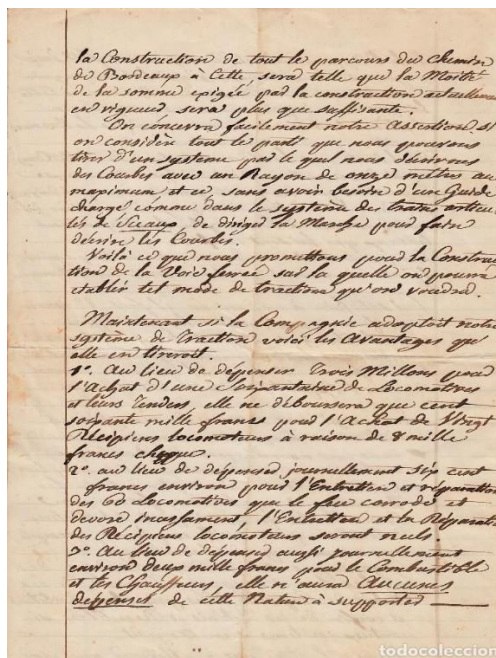 la Construction de tout le parcours du chemin
de Bordeaux à Cette, sera telle que la Moitié
de la somme exigée par la construction actuellement
en vigueur sera plus que suffisante.
On concevra facilement notre Assertion, si
on considère tout le parti que nous pouvons
tirer d'un système par le quel nous décrivons
des Courbes avec un Rayon de onze mètres au
maximum et ce, sans avoir besoin d'une Guide
chargé comme dans le système des trains articu-
lés de Sceaux, de diriger la Marche pour faire
décrire les Courbes.
Voilà ce que nous promettons pour la Construc-
tion de la Voie ferrée sur la quelle on pourra
établir tel mode de traction qu'on voudra.
Maintenant si la Compagnie adoptoit notre
système de Traction voici les Avantages qu'
elle en tireroit.
1°. Au lieu de dépenser Trois Millions pour
l'Achat d'une Cinquantaine de Locomotives
et leurs Tenders, elle ne déboursera que cent
soixante mille francs pour l'Achat de Vingt
Récipiens locomoteurs à raison de 8 mille
francs chaque.
2°. au lieu de dépenser journellement six cent
francs environ pour l'Entretien et réparation
des 60 Locomotives que le feu corrode et
dévore incessament, l'Entretien et la Réparation
des Récipiens locomoteurs seront nuls.
3°. Au lieu de dépenser aussi journellement
environ deux mille francs pour le Combustible
et les Chauffeurs, elle n'aura Aucunes
dépenses de cette Nature à supporter
todocoleccion